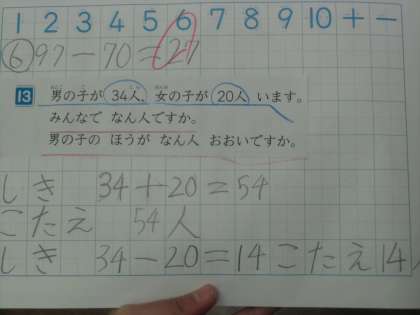 1 2 3 4 5 6 7 8 9 10 + −
⑥ 97−70=27
13 男の子が 34人、女の子が 20人 います。
みんなで なん人ですか。
男の子の ほうが なん人 おおいですか。
しき 34+20=54
こたえ 54人
しき 34−20=14 こたえ 14人